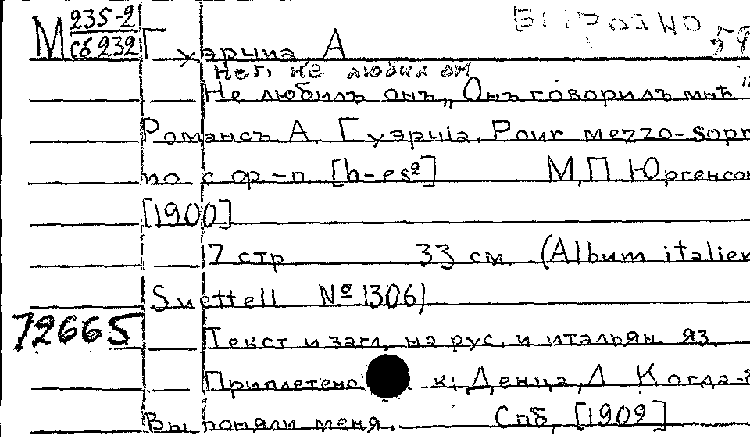 М 235-2 Гуэрчиа, А
сб 232
нет, не любил он
Не любилъ онъ „Онъ говорилъ мнѣ"
Романсъ А. Гуэрчiа. Pour mezzo-sopr
по с ф-п. [h-es²] М, П. Юргенсон
[1900]
7 стр 33 см (Album italien
Suettell № 1306)
72665 Текст и загл. на рус. и итальян. яз.
Приплетено к: Денца, Л Когда-
Вы поняли меня. Спб, [1909]